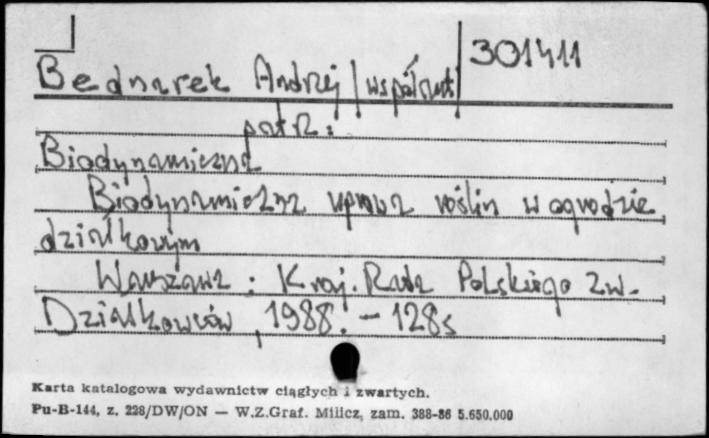 Bednarek Andrzej /współaut/ 301411
patrz:
Biodynamiczna
Biodynamiczna uprawa roślin w ogrodzie
działkowym
Warszawa : Kraj. Rada Polskiego Zw.
Działkowców, 1988. - 128s
Karta katalogowa wydawnictw ciągłych i zwartych.
Pu-B-144, z. 228/DW/ON — W.Z.Graf. Milicz, zam. 388-86 5.650.000